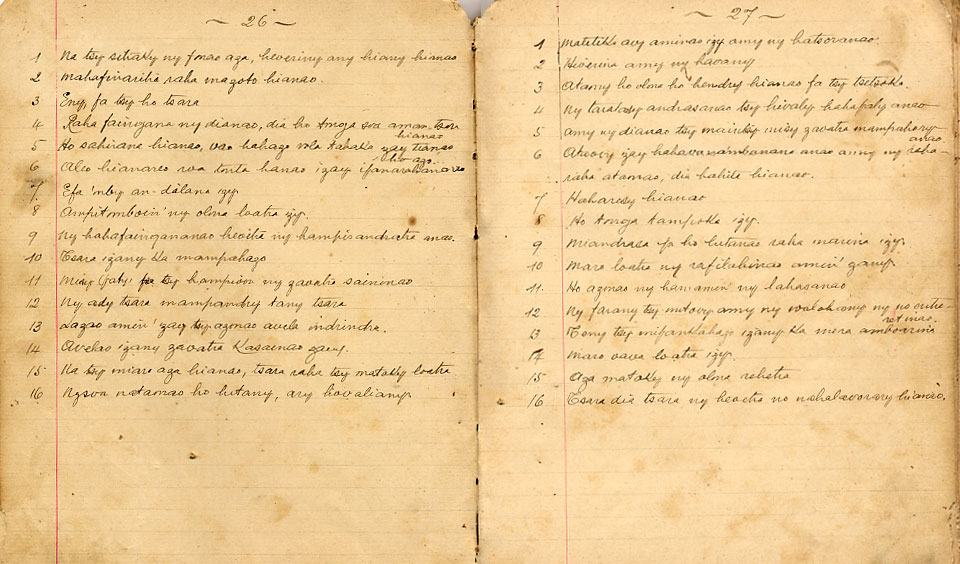 ~ 26 ~
1 Na tsy sitraky ny fonao aza, heveriny any hiany hianao
2 Mahafinaritra raha mazoto hianao.
3 Eny, fa tsy ho tsara
4 Raha faingana ny dianao, dia ho tonga soa aman-tsara
hianao
5 Ho sahirana hianao, vao hahazo vola tahaka izay tianao
ho azo.
6 Aleo hianareo roa tonta hanao izay ifanarahanareo
7 Efa 'mby an-dàlana izy
8 Ampitomboin' ny olona loatra izy.
9 Ny hahafaingananao hevitra ny hampisandratra anao.
10 Tsara izany ka mampahazo
11 Misy ihany tsy hampion ny zavatra saininao
12 Ny ady tsara mampandry tany tsara
13 Lazao amin' izay tsy azonao avela indrindra.
14 Avelao izany zavatra kasainao izany.
15 Na tsy miaro aza hianao, tsara raha tsy matoky loatra
16 Ny soa nataonao ho hitany, ary hovaliany
~ 27 ~
1 Matetika avy aminao izy amy ny hatsoranao
2 Heverina amy ny havany
3 Ataony ho olona ho hendry hianao fa tsy tsetsaka
4 Ny tarabay andrasanao tsy hivaly hahafaly anao
5 amy ny dianao tsy maintsy misy zavatra mampahory
anao
6 Ataovy izay hahavasambanana anao amy ny raha-
raha ataonao, dia hahita hianao.
7 Haharesy hianao
8 Ho tonga tampoka izy.
9 Miandrasa fa ho hitanao raha marina izy.
10 Maro loatra ny rafilahinao amin' izany.
11. Ho azonao ny hanamin' ny lahasanao
12 Ny farany tsy mitovy amy ny voalohany ny
13 Tony tsy mifankahazo izany ka mora amboarina
14 Maro vava loatra izy.
15 Aza matoky ny olona rehetra
16 Tsara dia tsara ny hevitra no hianao.